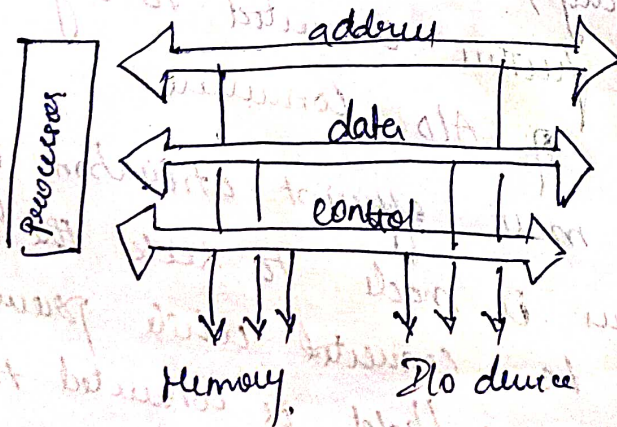 processor
address
data
control
Memory.
I/o device